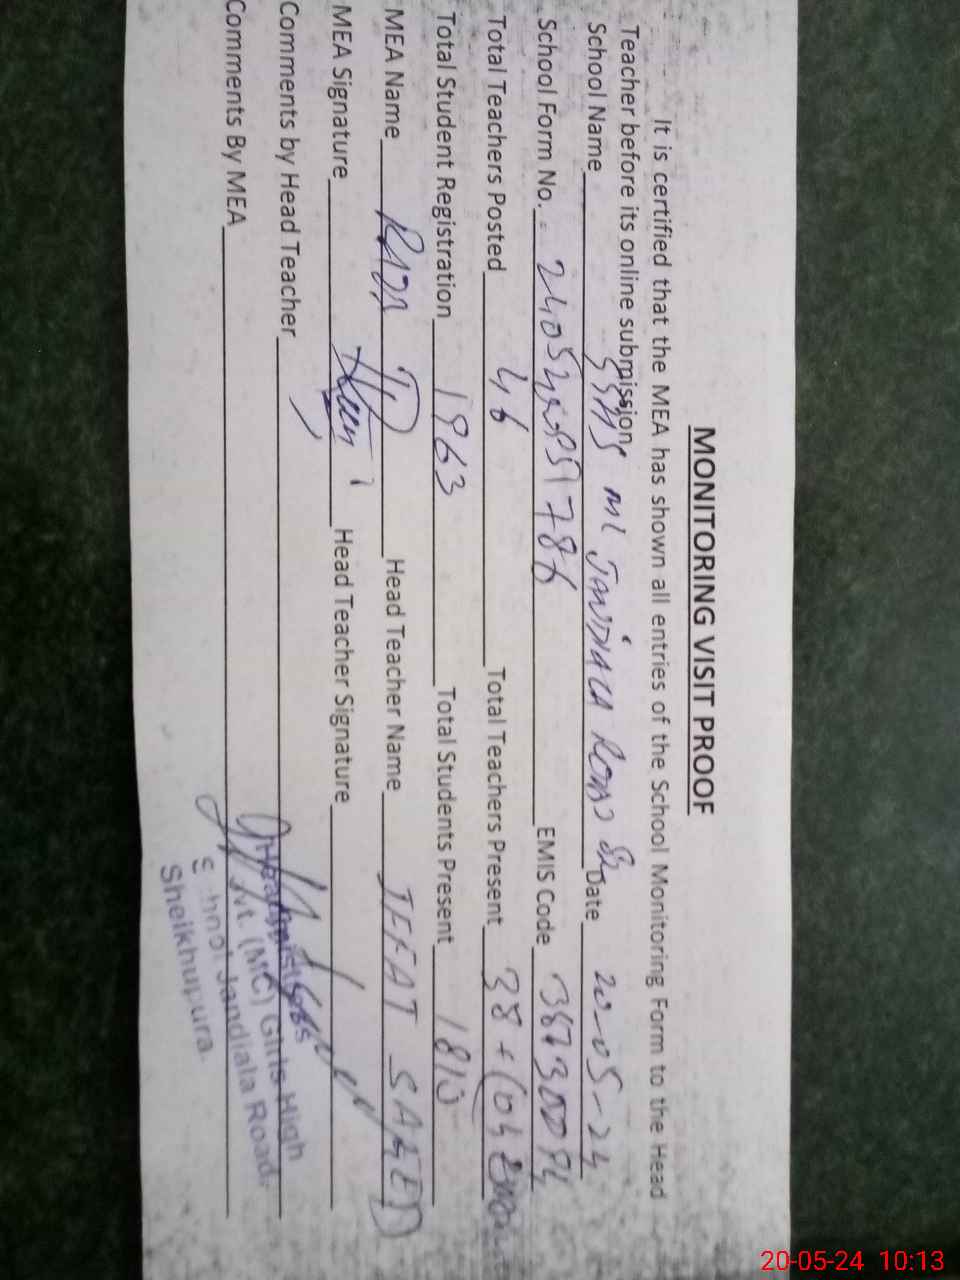 MONITORING VISIT PROOF
It is certified that the MEA has shown all entries of the School Monitoring Form to the Head
Teacher before its online submission.
School Name GGHS MC JANDIALA ROAD Date 20-05-24
School Form No. EMIS Code
Total Teachers Posted 46 Total Teachers Present 38 + (04
Total Student Registration 1963 Total Students Present
MEA Name Head Teacher Name IFFAT SAEED
MEA Signature Head Teacher Signature
Comments by Head Teacher
Comments By MEA
Headmistress
Govt. (MC) Girls High
School Jandiala Road,
Sheikhupura.
20-05-24 10:13